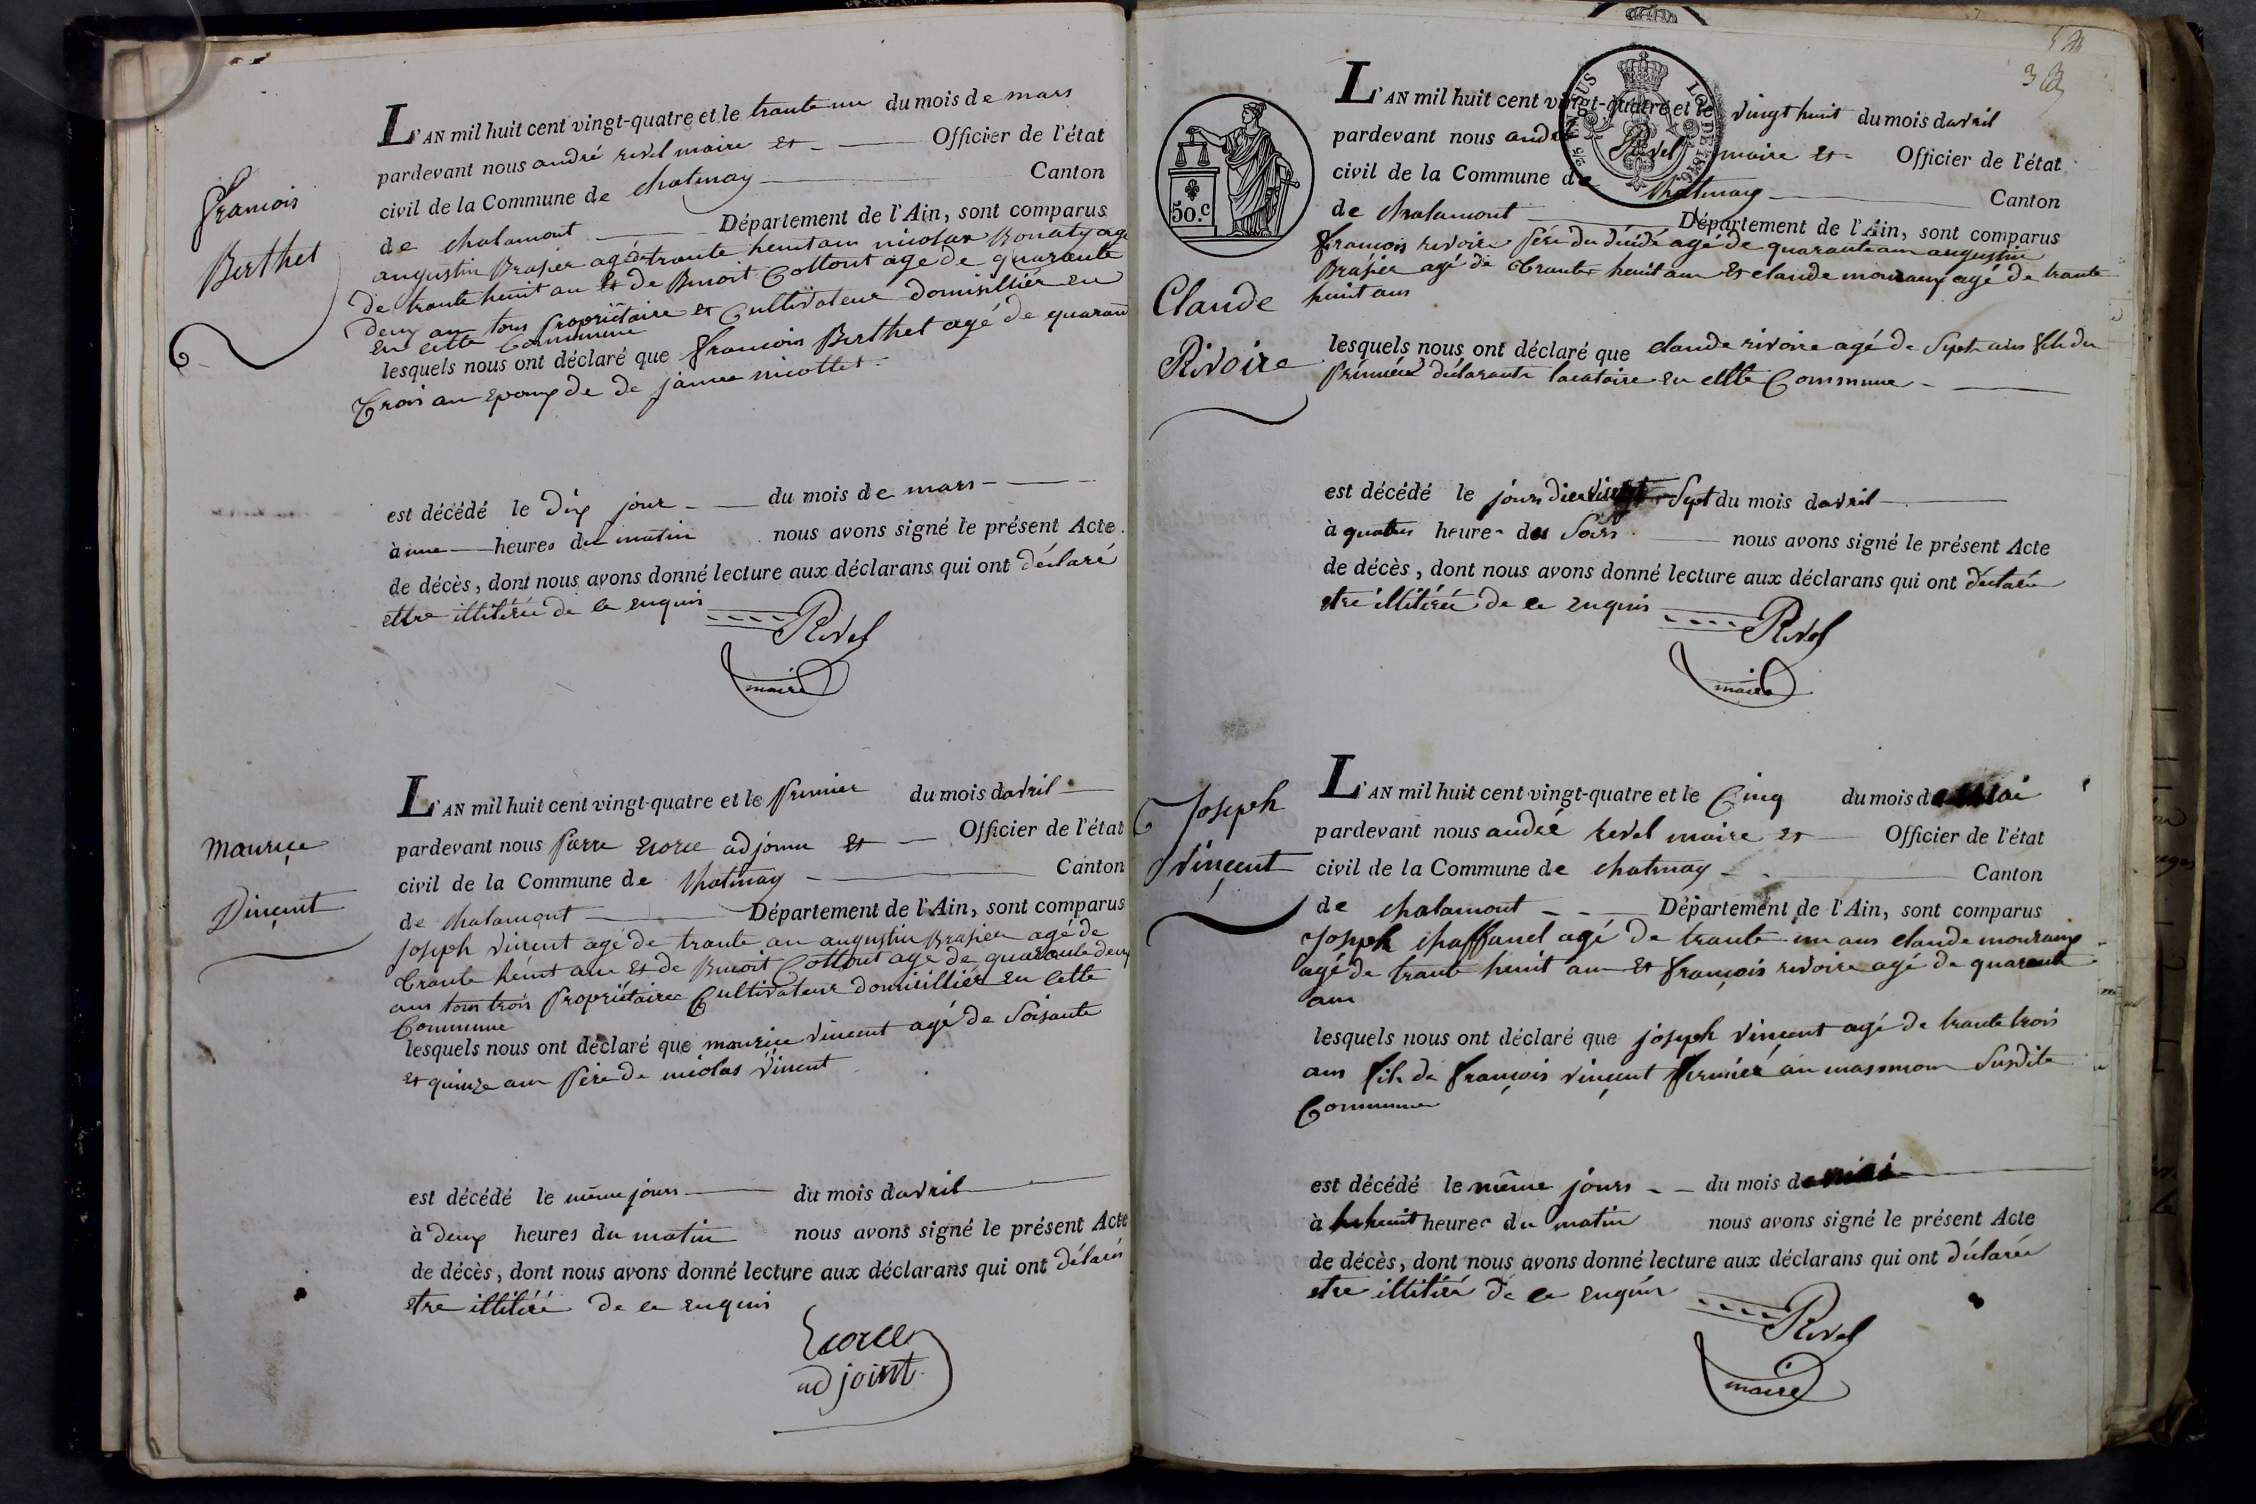 François
Berthet
L'AN mil huit cent vingt-quatre et le trante une du mois de mars
pardevant nous andré revel maire et Officier de l'état
civil de la Commune de chatenay Canton
de chalamont Département de l'Ain, sont comparus
augustin Brasier agé trante heuit ans nicolas Bonaty agé
de trante heuit an et de Benoit Cottout agé de quarante
deux an tous propriétaire et Cultivateur domisillier en
en cette Commune
lesquels nous ont déclaré que François Berthet agé de quarant
trois an epoux de de janne nicollet
est décédé le dix jour du mois de mars
à une heures du matin nous avons signé le présent Acte
de décès, dont nous avons donné lecture aux déclarans qui ont déclaré
ettre illitérée de ce enquis
Revel
maire
maurice
Vincent
L'AN mil huit cent vingt-quatre et le premier du mois davril
pardevant nous Pierre Ecorce adjoint et Officier de l'état
civil de la Commune de chatenay Canton
de chalamont Département de l'Ain, sont comparus
joseph vincent agé de trante an augustin Brasier agé de
trante heuit ans et de Benoit Cottout agé de quarante deux
ans tous trois propriétaire Cultivateur domicillier en cette
Commune
lesquels nous ont déclaré que maurice vincent agé de soisante
et quinze ans père de nicolas vincent
est décédé le même jours du mois davril
à deux heures du matin nous avons signé le présent Acte
de décès, dont nous avons donné lecture aux déclarans qui ont délarés
etre illitéré de ce enquis
Ecorce
adjoint
33
50.c
25 EN SUS
LOI DE 1816
Claude
Rivoire
L'AN mil huit cent vingt-quatre et le vingt huit du mois davril
pardevant nous andré Revel maire et Officier de l'état
civil de la Commune de chatenay Canton
de chalamont Département de l'Ain, sont comparus
François rivoire père du décédé agé de quarante an augustin
Brasier agé de trante heuit ans et claude mouraux agé de trante
heuit ans
lesquels nous ont déclaré que claude rivoire agé de sept ans fils du
premier déclarante locataire en cette Commune
est décédé le jours dier vingt sept du mois davril
à quatres heures du soirs nous avons signé le présent Acte
de décès, dont nous avons donné lecture aux déclarans qui ont déclarée
etre illitérée de ce enquis
Revel
maire
Joseph
Vinçent
L'AN mil huit cent vingt-quatre et le Cinq du mois de mai
pardevant nous andré revel maire et Officier de l'état
civil de la Commune de chatenay Canton
de chalamont Département de l'Ain, sont comparus
Joseph chaffanel agé de trante un ans claude mouraux
agé de trante heuit an et françois revoire agé de quarante
ans
lesquels nous ont déclaré que joseph vinçent agé de trante trois
ans fils de françois vinçent fermier au susdite
Commune
est décédé le même jours du mois de mai
à heuit heures du matin nous avons signé le présent Acte
de décès, dont nous avons donné lecture aux déclarans qui ont déclarée
etre illitéré de ce enquis
Revel
maire